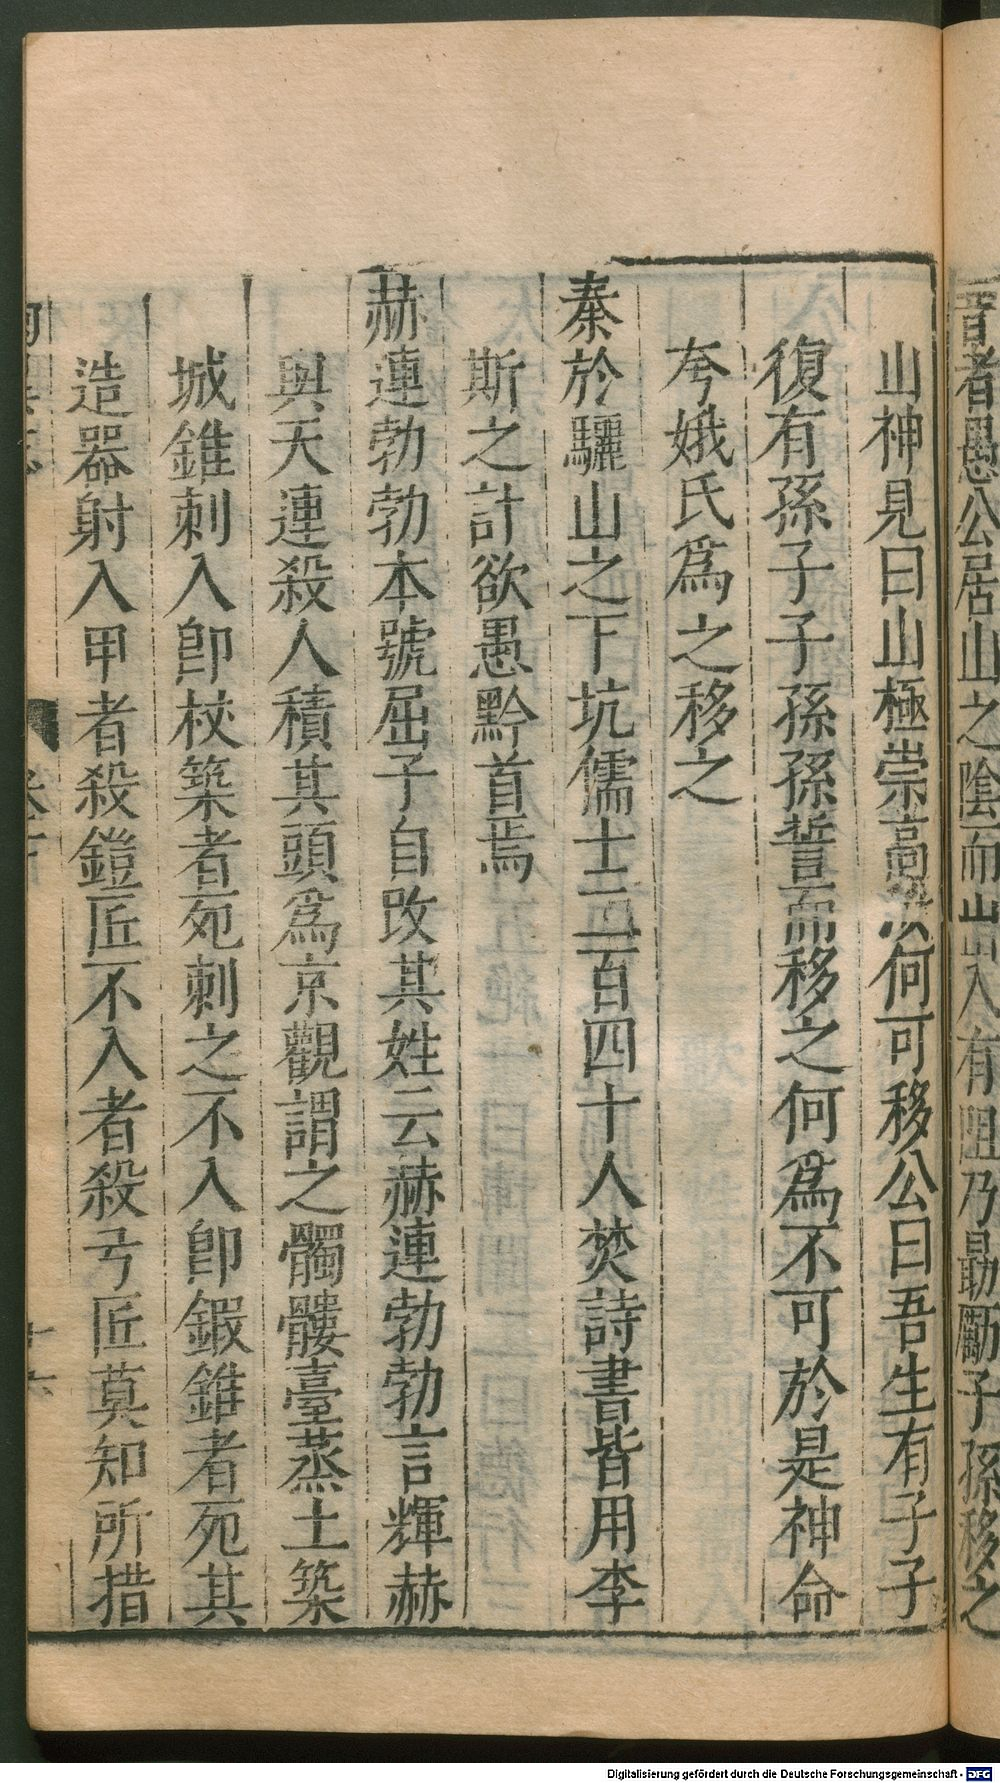 昔者愚公居山之陰而山出入有阻乃勗勵子孫移之
山神見曰山極崇高公何可移公曰吾生有子子
復有孫子子孫孫誓而移之何爲不可於是神命
夸娥氏爲之移之
秦於驪山之下坑儒士二百四十人焚詩書皆用李
斯之計欲愚黔首焉
赫連勃勃本號屈子自改其姓云赫連勃勃言輝赫
與天連殺人積其頭爲京觀謂之髑髏臺蒸土築
城錐刺入卽校築者死刺之不入卽鍜錐者死其
造器射入甲者殺鎧匠不入者殺弓匠莫知所措
卷下
十六
Digitalisierung gefördert durch die Deutsche Forschungsgemeinschaft - DFG